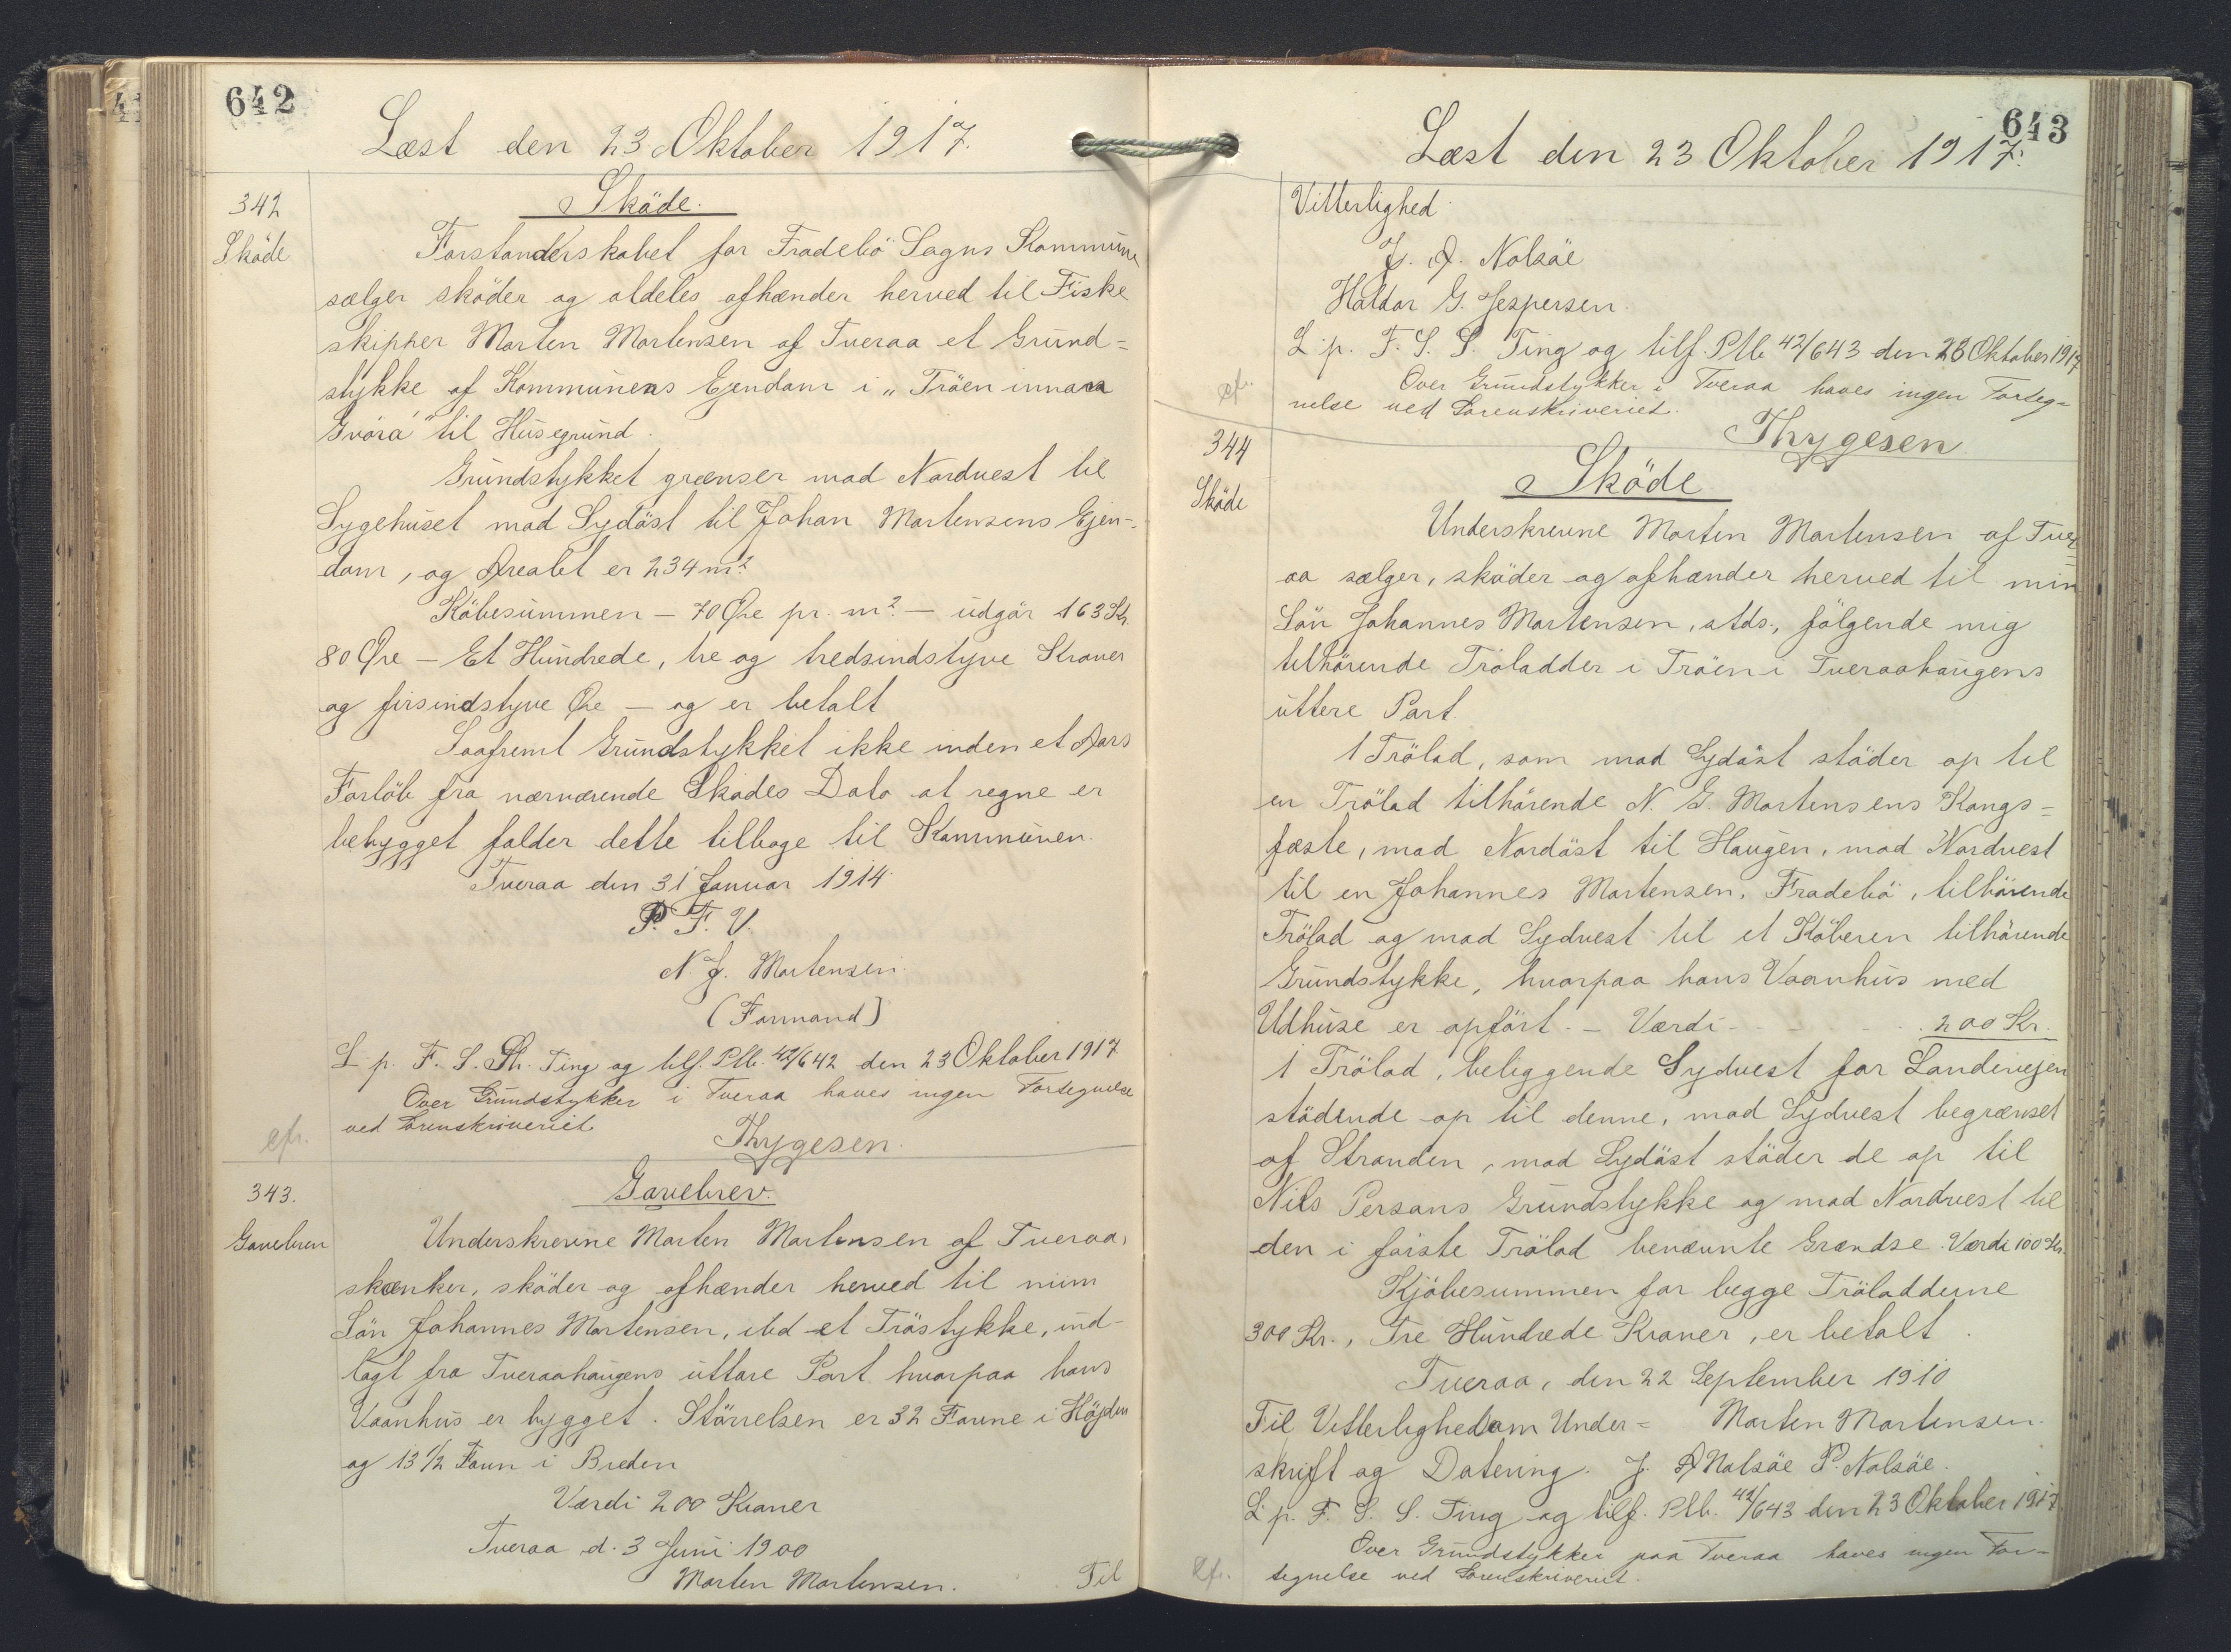 642
Læst den 23 Oktober 1917.
342
Sköde
Sköde.
Forstanderskabet for Frodebö Sogns Kommune
sælger sköder og aldeles afhænder herved til Fiske
skipper Morten Mortensen af Tveraa et Grund=
stykke af Kommunens Ejendom i "Tröen innara
Gvöra" til Husegrund.
Grundstykket grænser mod Nordvest til
Sygehuset mod Sydöst til Johan Mortensens Ejen-
dom, og Arealet er 234 m²
Köbesummen – 70 Øre pr. m² – udgör 163 Kr.
80 Øre – Et Hundrede, tre og tredsindstyve Kroner
og firsindstyve Øre – og er betalt
Saafremt Grundstykket ikke inden et Aars
Forlöb fra nærværende Sködes Dato at regne er
bebygget falder dette tilbage til Kommunen.
Tveraa den 31 Januar 1914
P. F. V.
N. J. Mortensen.
(Formand)
L. p. F. S. Th. Ting og tilf. Ptb. 42/642 den 23 Oktober 1917
Over Grundstykker i Tveraa haves ingen Fortegnelse
ved Sorenskriveriet
Thygesen.
cfr.
343.
Gavebrev
Gavebrev.
Underskrevne Morten Mortensen af Tveraa,
skænker, sköder og afhænder herved til min
Sön Johannes Mortensen, ibd et Tröstykke, ind-
tagt fra Tveraahaugens uttare Part hvorpaa hans
Vaanhus er bygget. Störrelsen er 32 Favne i Höjden
og 13 1/2 Favn i Breden
Værdi 200 Kroner
Tveraa d. 3 Juni 1900
Morten Mortensen.
Til
643
Læst den 23 Oktober 1917.
Vitterlighed
J. A. Nolsöe
Haldor G. Jespersen.
L. p. F. S. S. Ting og tilf. Ptb 42/643 den 23 Oktober 1917
Over Grundstykker i Tveraa haves ingen Forteg=
nelse ved Sorenskriveriet.
cfr.
Thygesen
344
Sköde
Sköde
Underskrevne Morten Mortensen af Tver
aa sælger, sköder og afhænder herved til min
Sön Johannes Mortensen, stds., fölgende mig
tilhörende Tröladder i Tröen i Tveraahaugens
uttere Part.
1 Trölad, som mod Sydöst stöder op til
en Trölad tilhörende N. G. Mortensens Kongs=
fæste, mod Nordöst til Haugen, mod Nordvest
til en Johannes Mortensen, Frodebö, tilhörende
Trölad og mod Sydvest til et Köberen tilhörende
Grundstykke, hvorpaa hans Vaanhus med
Udhuse er opfört. – Værdi - - - . 200 Kr.
1 Trölad, beliggende Sydvest for Landevejen
stödende op til denne, mod Sydvest begrænset
af Stranden, mod Sydöst stöder de op til
Nils Persons Grundstykke og mod Nordvest til
den i förste Trölad benævnte Grændse. Værdi 100 Kr.
Kjöbesummen for begge Tröladdene
300 Kr., Tre Hundrede Kroner, er betalt.
Tveraa, den 22 September 1910
Til Vitterlighed om Under= Morten Mortensen.
skrift og Datering. J. A Nolsöe P. Nolsöe.
L. p. F. S. S. Ting og tilf. Ptb. 42/643 den 23 Oktober 1917
Over Grundstykker paa Tveraa haves ingen For=
tegnelse ved Sorenskriveriet.
cfr.